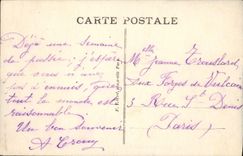 CARTE POSTALE
Déjà une semaine
de passée; j'espère
que vous n'avez
pas d'ennuis, que
tout le monde est
raisonnable.
Un bon souvenir
Melle Jeanne
aux Forges de Vulcain
3 Rue St Denis
Paris